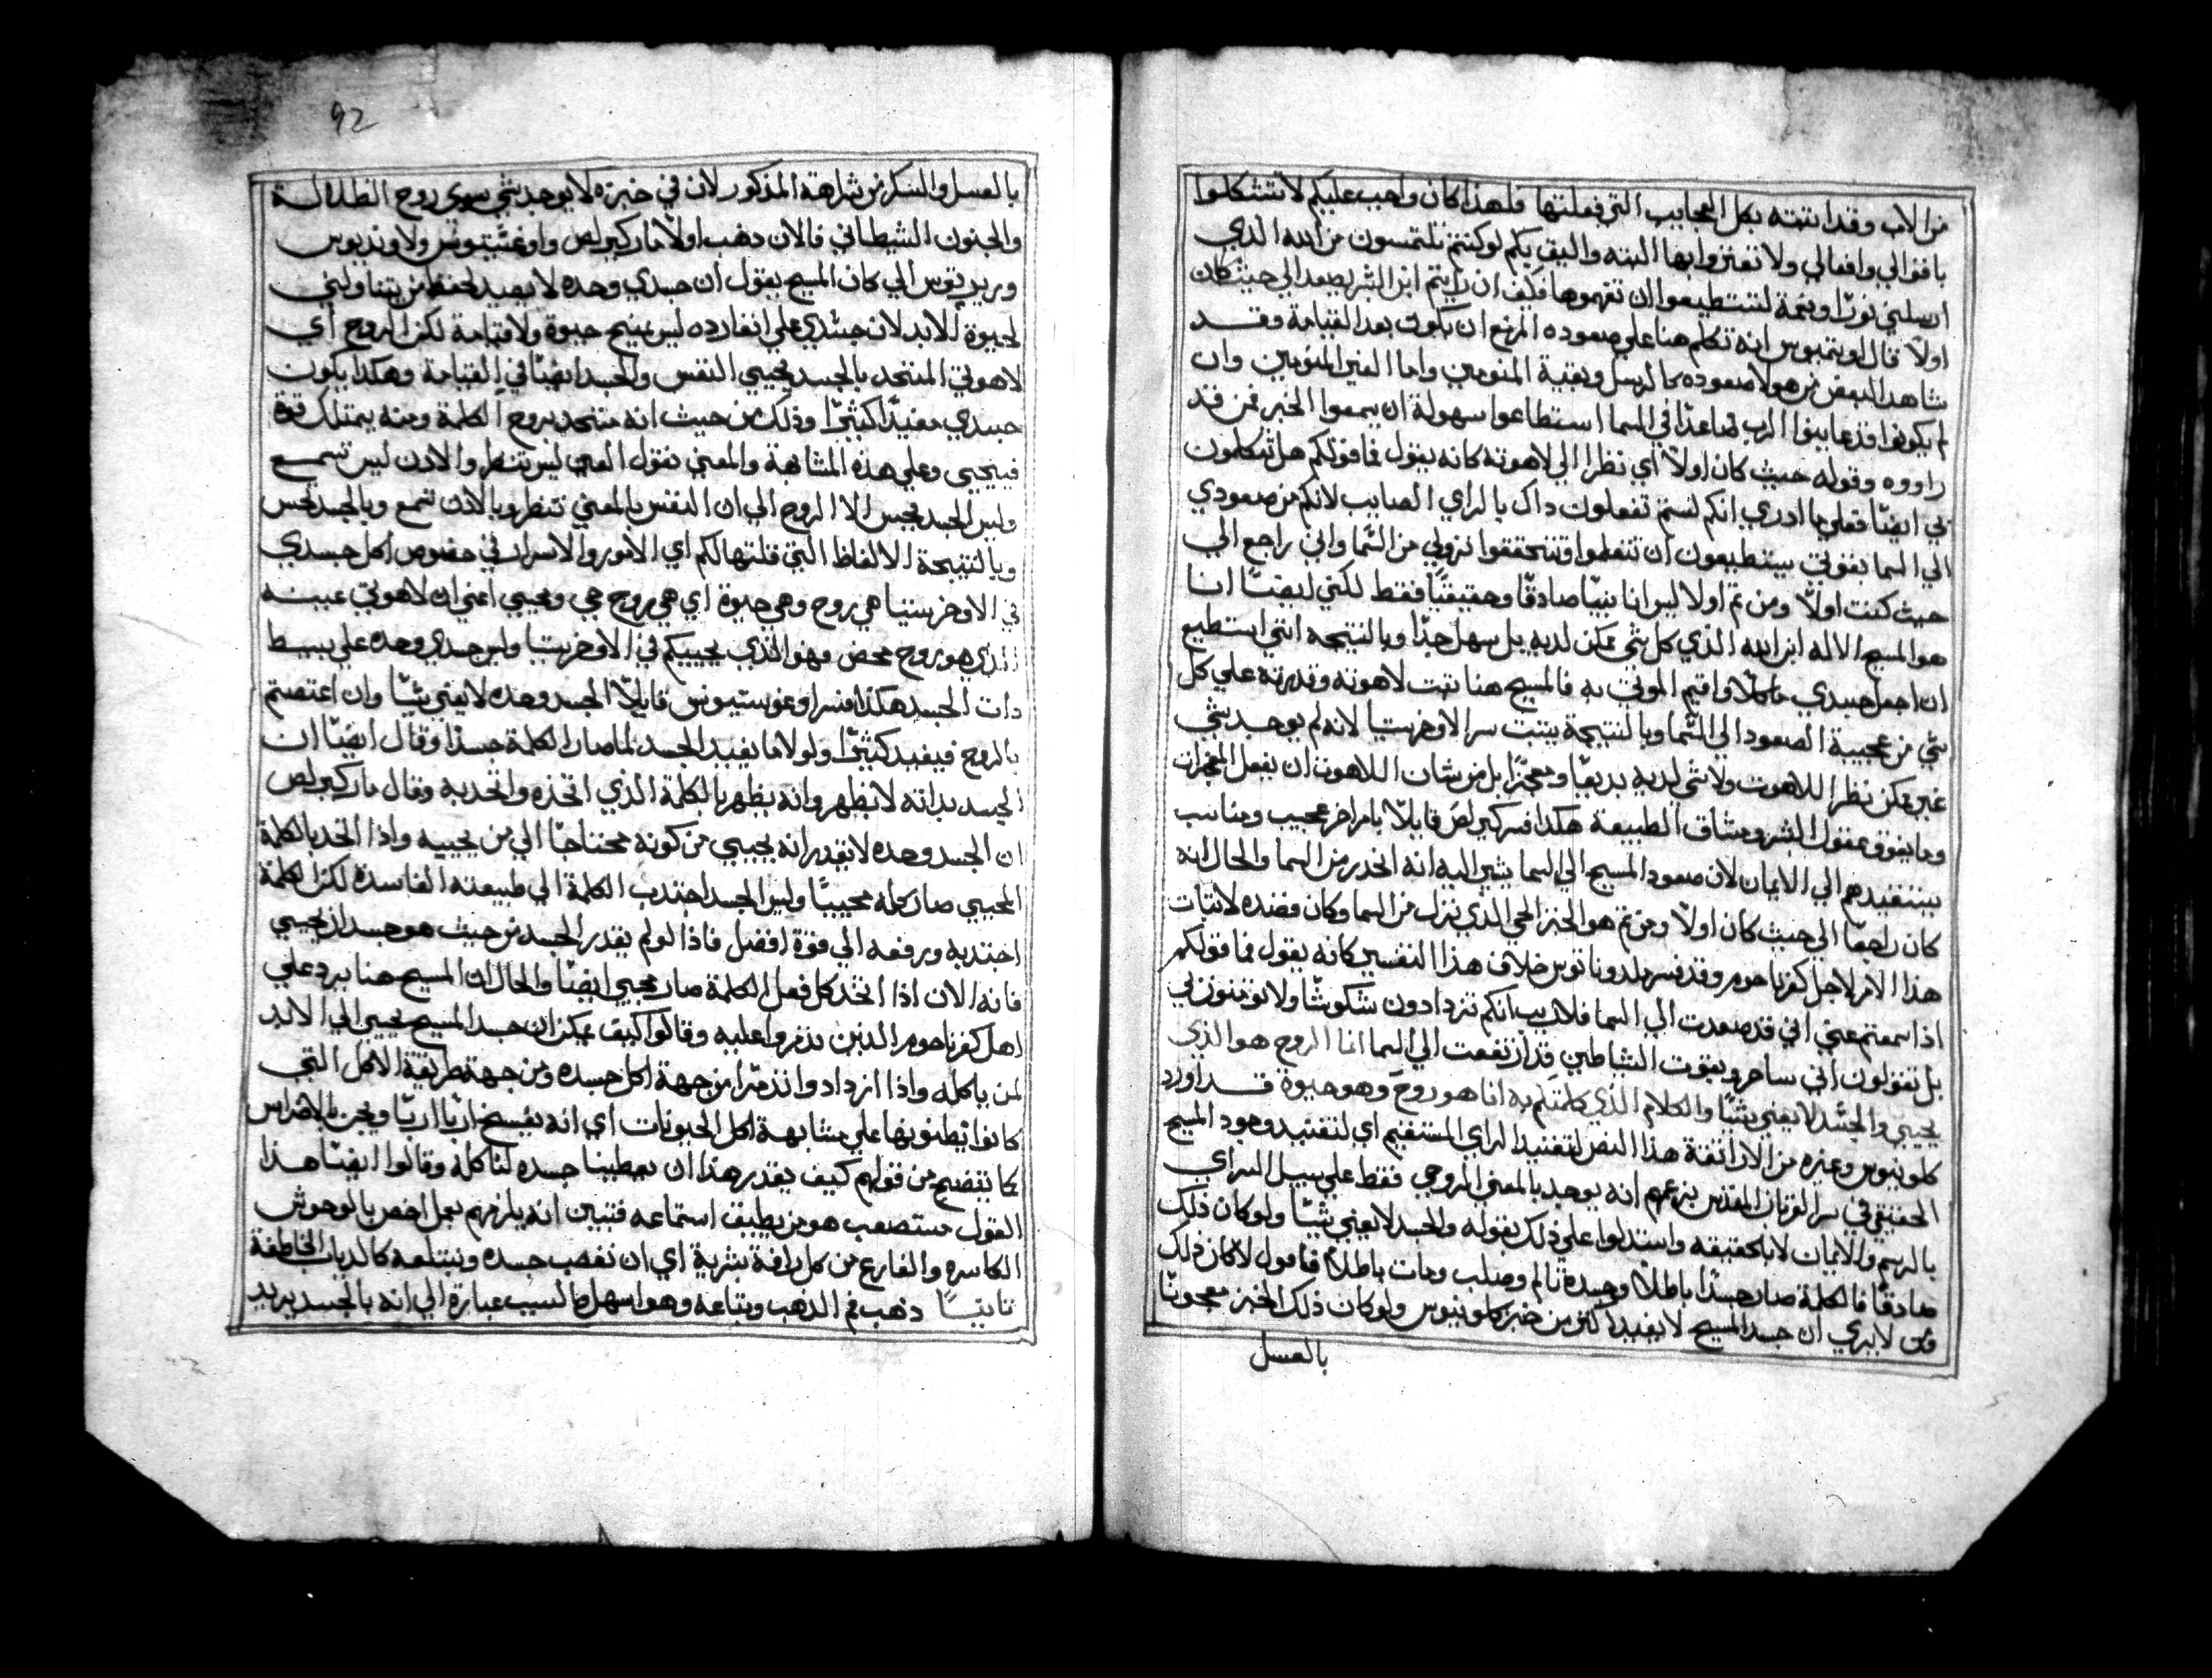 من الاب وقد اثبته بكل العجايب التي فعلتها فلهذا كان واجب عليكم لا تتشكلوا
باقوالي وافعالي ولا تعثروا بها البته واليق بكم لو كنتم تلتمسون من الله الذي
ارسلني نورًا ونعمة لتستطيعوا ان تفهموها فكيف ان رايتم ابن البشر يصعد الي حيث كان
اولًا قال اوتيميوس انه تكلم هنا علي صعوده المزمع ان يكون بعد القيامة وقد
شاهد البعض من هولا صعوده كالرسل وبقية المنومنين واما الغير المنومنين وان
لم يكونوا قد عاينوا الرب صاعدًا في السما استطاعوا سهولة ان يسمعوا الخبر ممن قد
راووه وقوله حيث كان اولًا اي نظرا الي لاهوته كانه يقول فما قولكم هل تتكلمون
بي ايضًا فعلي ما ادري انكم لستم تفعلون داك بالراي الصايب لانكم من صعودي
الي السما بقوتي ستطيعون ان تتعلموا وتتحققوا نزولي من السما واني راجع الي
حيث كنت اولًا ومن ثم اولا ليس انا نبيًا صادقًا وحقيقيًا فقط لكني ايضًا انا
هو المسيح الاله ابن الله الذي كل شي ممكن لديه بل سهل جدًا وبالنتيجه انني استطيع
ان اجعل جسدي ماكلًا واقيم الموتي به فالمسيح هنا يثبت لاهوته وقدرته علي كل
شي من عجيبة الصعود الي السما وبالنتيجة يثبت سر الاوخرستيا لانه لم يوجد شي
غير ممكن نظرا اللاهوت ولا شي لديه بديعًا ومعجزًا بل من شان اللاهوت ان يفعل المعجزات
وما يفوق عقول البشر ومشاق الطبيعة هكذا فسر كيرلص قايلًا بامر اخر عجيب ومناسب
يستفيدهم الي الايمان لان صعود المسيح الي السما يشير اليه انه انحدر من السما والحال انه
كان راجعًا الي حيث كان اولًا ومن ثم هو الخبز الحي الذي نزل من السما وكان قصده لاثبات
هذا الامر لاجل كفرناحوم وقد فسر ملدوناتوس خلاف هذا التفسير كانه يقول فما قولكم
اذا سمعتم عني اني قد صعدت الي السما فلا ريب انكم تزدادون شكوكًا ولا تومنون بي
بل تقولون اني ساحر وبقوت الشياطين قد ارتفعت الي السما انما الروح هو الذي
يحيي والجسد لا يغني شيًا والكلام الذي كلمتكم به انما هو روح وهو حيوة قد اورد
كلوينوس وغيره من الاراتقة هذا النص لتفنيد الراي المستقيم اي لتفنيد وجود المسيح
الحقيقي في سر القربان المقدس بزعمهم انه يوجد بالمعني الروحي فقط علي سبيل السراي
بالرسم والايمان لا بالحقيقه واستدلوا علي ذلك بقوله والجسد لا يغني شيًا ولو كان ذلك
صادقًا فالكلمة صار جسدًا باطلًا وجسده تالم وصلب ومات باطلًا فاقول لا كان ذلك
فمن لا يري ان جسد المسيح لا يفيد اكثر من خبز كلوينوس ولو كان ذلك الخبز معجونًا
بالعسل
92
بالعسل والسكر من شراهته المذكور لان في خبزه لا يوجد شي سوي روح الظلالة
والجنون الشيطاني فالان دهب اولًا مار كيرلص واوغستينوس ولاونديوس
وبربيتوس الي كان المسيح يقول ان جسدي وحده لا يفيد لحفظ من يتناولني
لحيوة الابد لان جسدي علي انفارده ليس يمنح حيوة ولا قيامة لكن الروح أي
لاهوتي المتحد بالجسد يحيي النفس والجسد ايضًا في القيامة وهكذا يكون
جسدي مفيدًا كثيرًا وذلك من حيث انه متحد بروح الكلمة ومنه يمتلك قوة
فيحيي وعلي هذه المشابهة والمعني نقول العين ليس تنظر والاذن ليس تسمع
وليس الجسد يحس الا الروح اي ان النفس بالمعني تنظر وبالاذن تسمع وبالجسد تحس
وبالنتيجة الالفاظ التي قلتها لكم اي الامور والاسرار في خصوص اكل جسدي
في الاوخرستيا هي روح وهي حيوة اي هي روح حي ومحيي اعني ان لاهوتي عينه
الذي هو روح محض وهو الذي يحييكم في الاوخرستيا وليس جسدي وحده علي بسيط
دات الجسد هكذا فسر اوغوستينوس قايلًا الجسد وحده لا يغني شيًا وان اعتصم
بالروح فيفيد كثيرًا ولولا ما يفيد الجسد لما صار الكلمة جسدًا وقال ايضًا ان
الجسد بداته لا يظهر وانه يظهر بالكلمة الذي اتخذه واتحد به وقال مار كيرلص
ان الجسد وحده لا يقدر انه يحيي من كونه محتاجًا الي من يحييه واذا اتحد بالكلمة
المحيي صار كله محييًا وليس الجسد اجتدب الكلمة الي طبيعته الفاسدة لكن الكلمة
اجتدبه ورفعه الي قوة افضل فاذا لو لم يقدر الجسد من حيث هو جسد ان يحيي
فانه الان اذا اتخد كل فعل الكلمة صار محيي ايضًا والحال ان المسيح هنا يرد علي
اهل كفرناحوم الذين تذمروا عليه وقالوا كيف يمكن ان جسد المسيح يحيي الي الابد
لمن ياكله واذا ازدادوا تذمرًا من جهة اكل جسده ومن جهة طريقة الاكل التي
كانوا يظنونها علي مشابهة اكل الحيونات اي انه يفسخ اربًا اربًا ويخرن بالاضراس
كما يتضح من قولهم كيف يقدر هذا ان يعطينا جسده لناكله وقالوا ايضًا هذا
القول مستصعب هو من يطيق استماعه فتبين انه يلزمهم بعمل اخص بالوحوش
الكاسره والفارغ من كل رافة بشرية اي ان نغصب جسده ونبتلعه كالدياب الخاطفة
تانيًا ذهب فم الذهب وتباعه وهو اسهل مالسيب عبارة الي انه بالجسد يريد